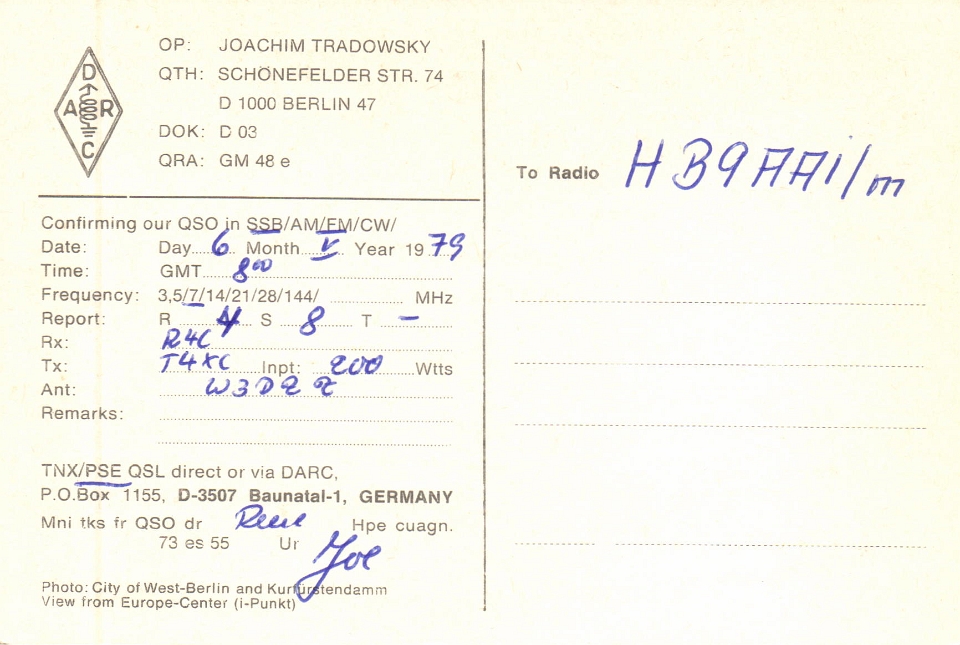 D
A R
C
OP: JOACHIM TRADOWSKY
QTH: SCHÖNEFELDER STR. 74
D 1000 BERLIN 47
DOK: D 03
QRA: GM 48 e
Confirming our QSO in SSB/AM/FM/CW/
Date: Day 6 Month V Year 1979
Time: GMT 8⁰⁰
Frequency: 3,5/7/14/21/28/144/ MHz
Report: R 4 S 8 T –
Rx: R4C
Tx: T4XC Inpt: 200 Wtts
Ant: W3DZZ
Remarks:
TNX/PSE QSL direct or via DARC,
P.O.Box 1155, D-3507 Baunatal-1, GERMANY
Mni tks fr QSO dr Rene Hpe cuagn.
73 es 55 Ur Joe
Photo: City of West-Berlin and Kurfürstendamm
View from Europe-Center (i-Punkt)
To Radio HB9AAI/m